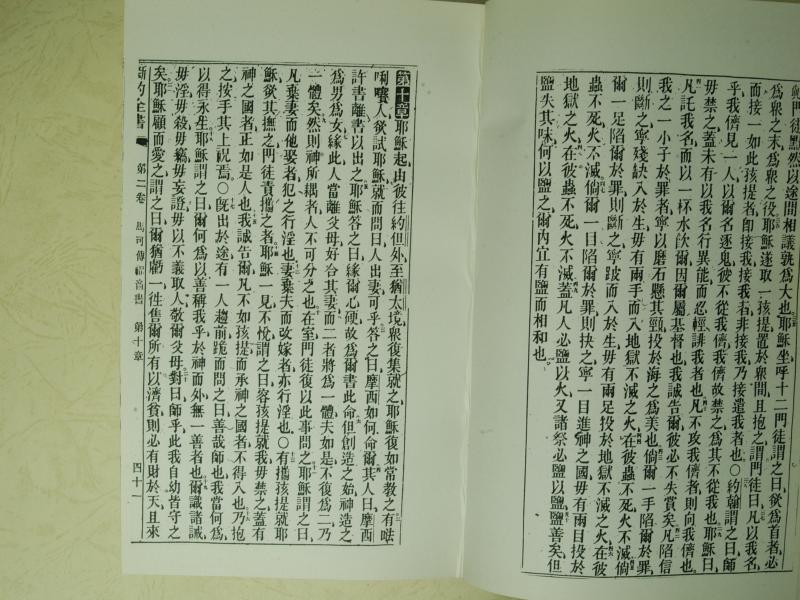 門徒默然以途間相議孰爲大也耶穌坐呼十二門徒謂之曰欲爲首者必
爲衆之末爲衆之役耶穌遂取一孩提置於衆間且抱之謂門徒曰凡以我名
而接一如此孩提者卽接我接我者非接我乃接遣我者也〇約翰謂之曰師
乎我儕見一人以爾名逐鬼彼不從我儕我儕故禁之爲其不從我也耶穌曰
毋禁之蓋未有以我名行異能而忍輕誹我者也凡不攻我儕者則向我儕也
凡託我名而以一杯水飲爾因爾屬基督也我誠告爾彼必不失賞矣凡陷信
我之一小子於罪者寧以磨石懸其頸投於海之爲美也倘爾一手陷爾於罪
則斷之寧殘缺入於生毋有兩手而入地獄不滅之火在彼蟲不死火不滅倘
爾一足陷爾於罪則斷之寧跛而入於生毋有兩足投於地獄不滅之火在彼
蟲不死火不滅倘爾一目陷爾於罪則抉之寧一目進神之國毋有兩目投於
地獄之火在彼蟲不死火不滅蓋凡人必鹽以火又諸祭必鹽以鹽鹽善矣但
鹽失其味何以鹽之爾內宜有鹽而相和也
第十章耶穌起由彼往約但外至猶太境衆復集就之耶穌復如常教之有𠵽
唎嚽人欲試耶穌就而問曰人出妻可乎答之曰摩西如何命爾其人曰摩西
許書離書以出之耶穌答之曰緣爾心硬故爲爾書此命但創造之始神造之
爲男爲女緣此人當離父母好合其妻而二者將爲一體夫如是不復爲二乃
一體矣然則神所耦者人不可分之也在室門徒復以此事問之耶穌謂之曰
凡棄妻而他娶者犯之行淫也妻棄夫而改嫁者亦行淫也〇有攜孩提就耶
穌欲其撫之門徒責攜之者耶穌一見不悅謂之曰容孩提就我毋禁之蓋有
神之國者正如是人也我誠告爾凡不如孩提而承神之國者不得入也乃抱
之按手其上祝焉〇旣出於途有一人趨前跪而問之曰善哉師也我當何爲
以得永生耶穌謂之曰爾何爲以善稱我乎於神而外無一善者也爾識諸誡
毋淫毋殺毋竊毋妄證毋以不義取人敬爾父母對曰師乎此我自幼皆守之
矣耶穌顧而愛之謂之曰爾猶虧一徃售爾所有以濟貧則必有財於天且來
新約全書 第二卷 馬可傳福音書 第十章 四十一